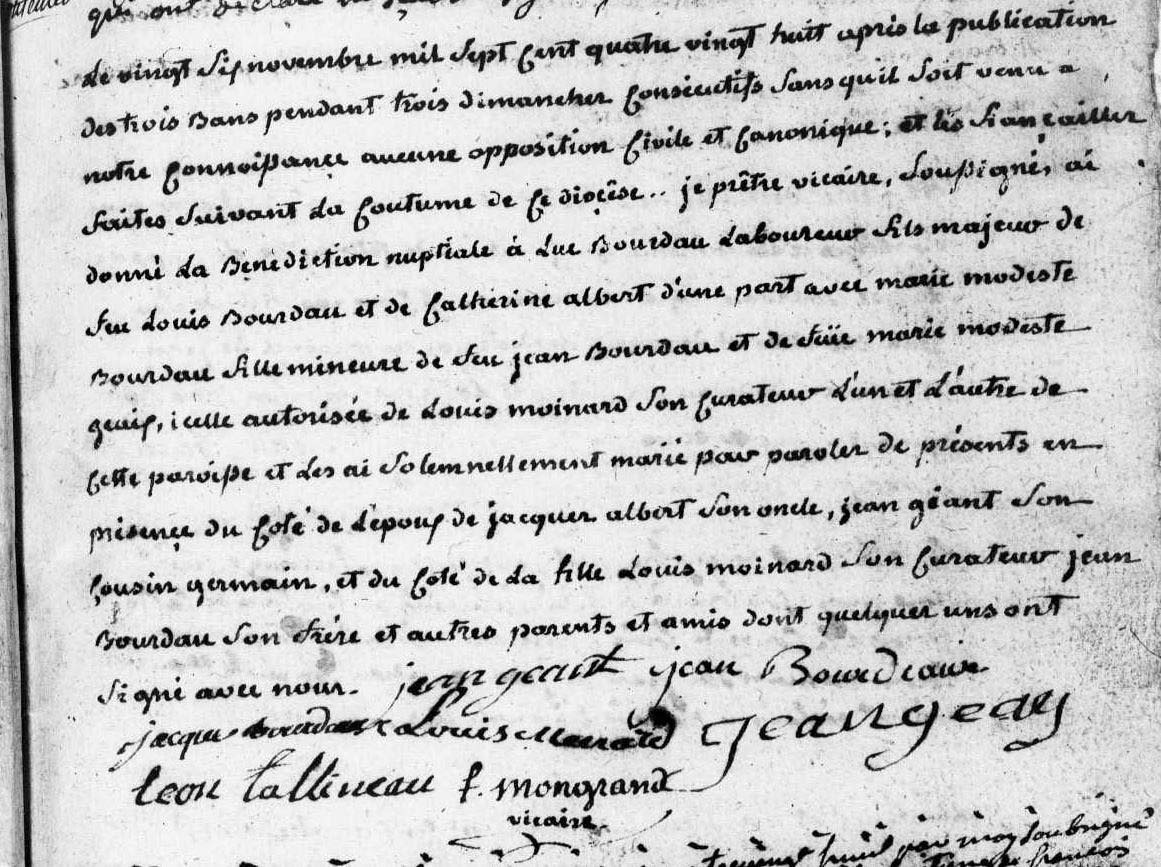 qui ont déclaré
Le vingt six novembre mil sept cent quatre vingt huit apres la publication
des trois Bans pendant trois dimanches consecutifs sans qu'il soit venu a
notre connoissance aucune opposition civile et canonique; et les fiançailles
faites suivant la coutume de ce diocèse.. je prêtre vicaire, soussigné, ai
donné la Benediction nuptiale à Luc Bourdau Laboureur fils majeur de
feu Louis Bourdau et de Catherine albert d'une part avec marie modeste
Bourdau fille mineure de feu jean Bourdau et de feüe marie modeste
icelle autorisée de Louis moinard son curateur l'un et l'autre de
cette paroisse et les ai solemnellement marié par paroles de présents en
présence du coté de l'époux de jacques albert son oncle, jean géant son
cousin germain, et du coté de la fille Louis moinard son curateur jean
Bourdau son frére et autres parents et amis dont quelques uns ont
signé avec nous. jean geant jean Bourdeaux
jacque Bourdaux Louis Jean geay
leon tallineau f. mongrand
vicaire
par moy soubsigné
françois